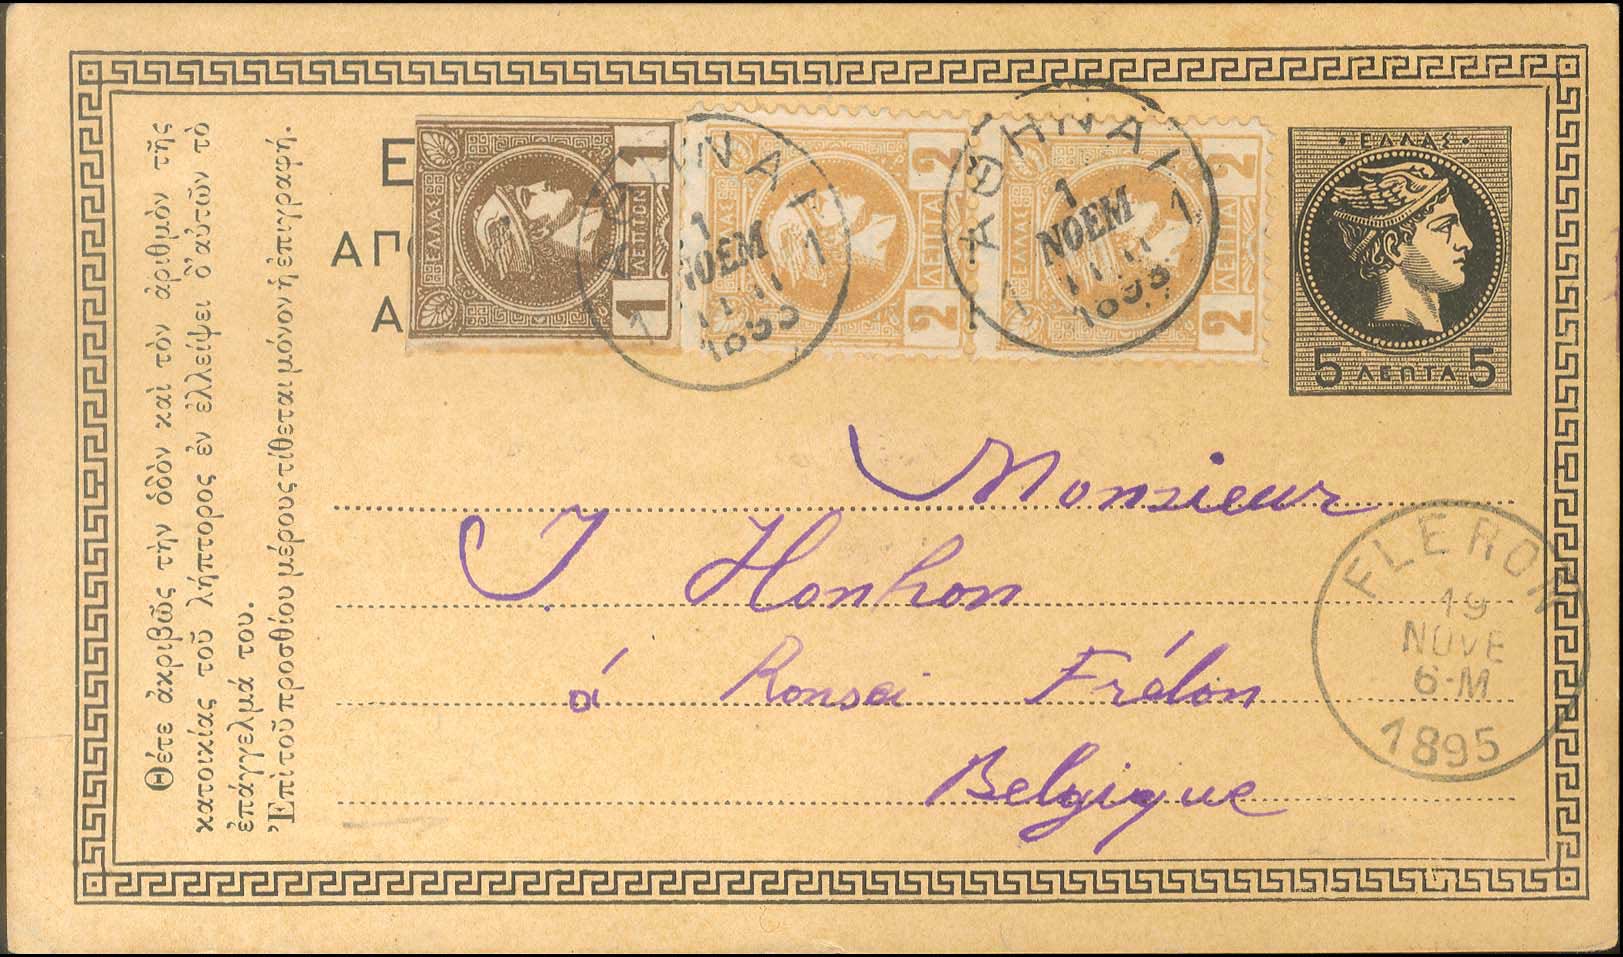 Θέτε ἀκριβῶς τὴν ὁδὸν καὶ τὸν ἀριθμὸν τῆς
κατοικίας τοῦ λήπτορος ἐν ἐλλείψει δ'αὐτῶν τὸ
ἐπάγγελμά του.
Ἐπὶ τοῦ προσθίου μέρους τίθεται μόνον ἡ ἐπιγραφή.
Ε
ΑΠ
Α
ΕΛΛΑΣ
1 ΛΕΠΤΟΝ 1
ΑΘΗΝΑΙ
1
ΝΟΕΜ
1 1
1895
ΕΛΛΑΣ
2 ΛΕΠΤΑ 2
ΑΘΗΝΑΙ
1
ΝΟΕΜ
1 1
1895
ΕΛΛΑΣ
2 ΛΕΠΤΑ 2
ΕΛΛΑΣ
5 ΛΕΠΤΑ 5
Monsieur
J Honhon
à Frélon
Belgique
FLERON
19
NOVE
6-M
1895